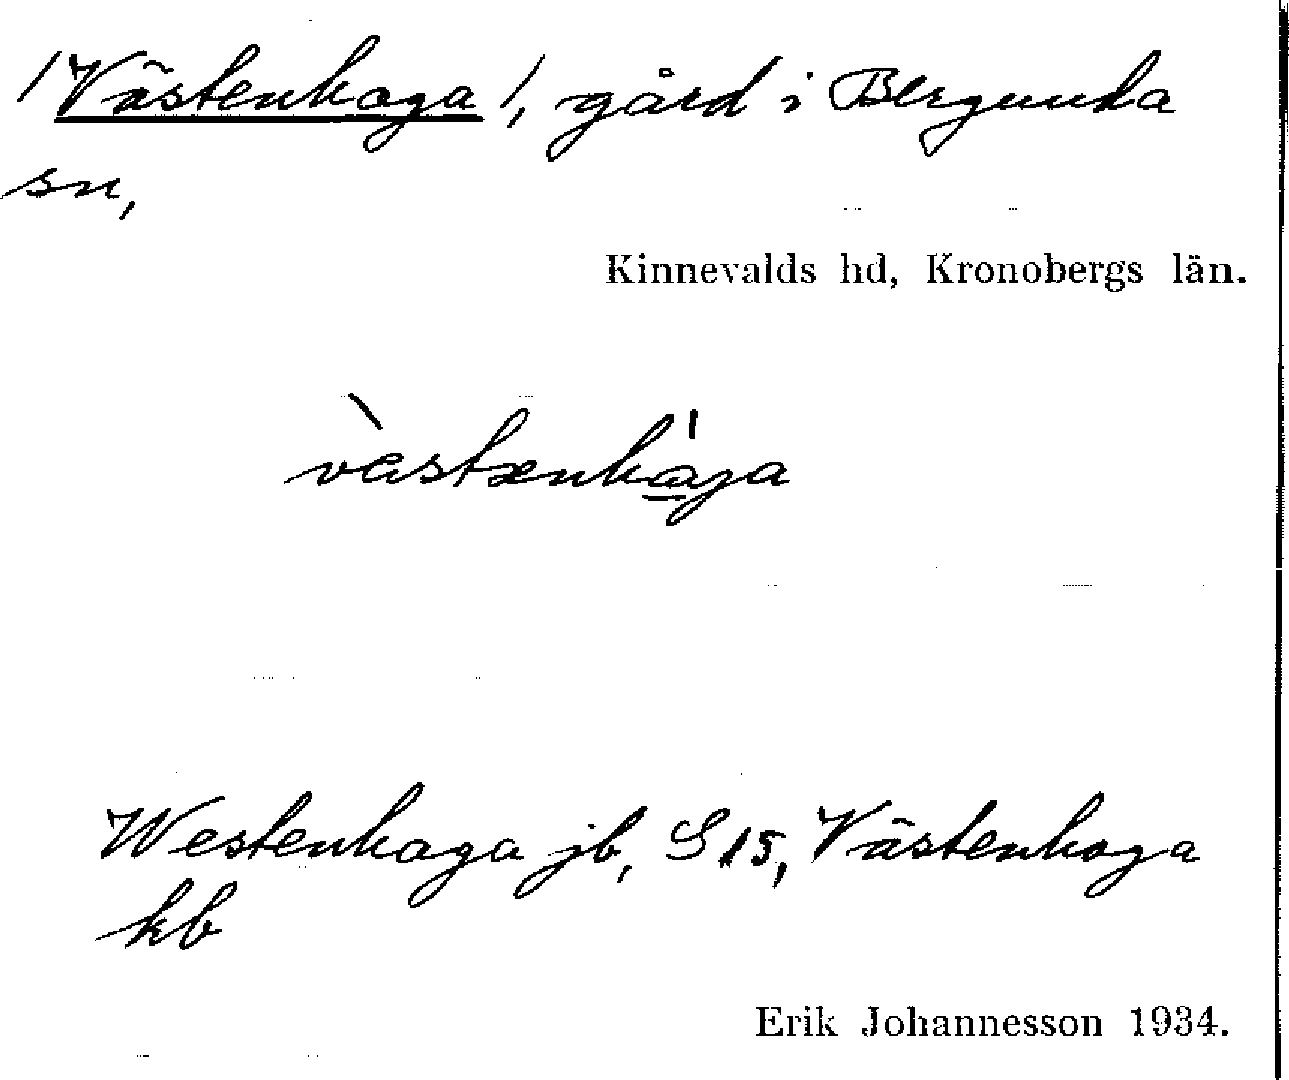 /Västenhaga/, gård i Bergunda
sn,
Kinnevalds hd, Kronobergs län.
vàstænha̲̍ja
Westenhaga jb, S 15, Västenhaga
kb
Erik Johannesson 1934.